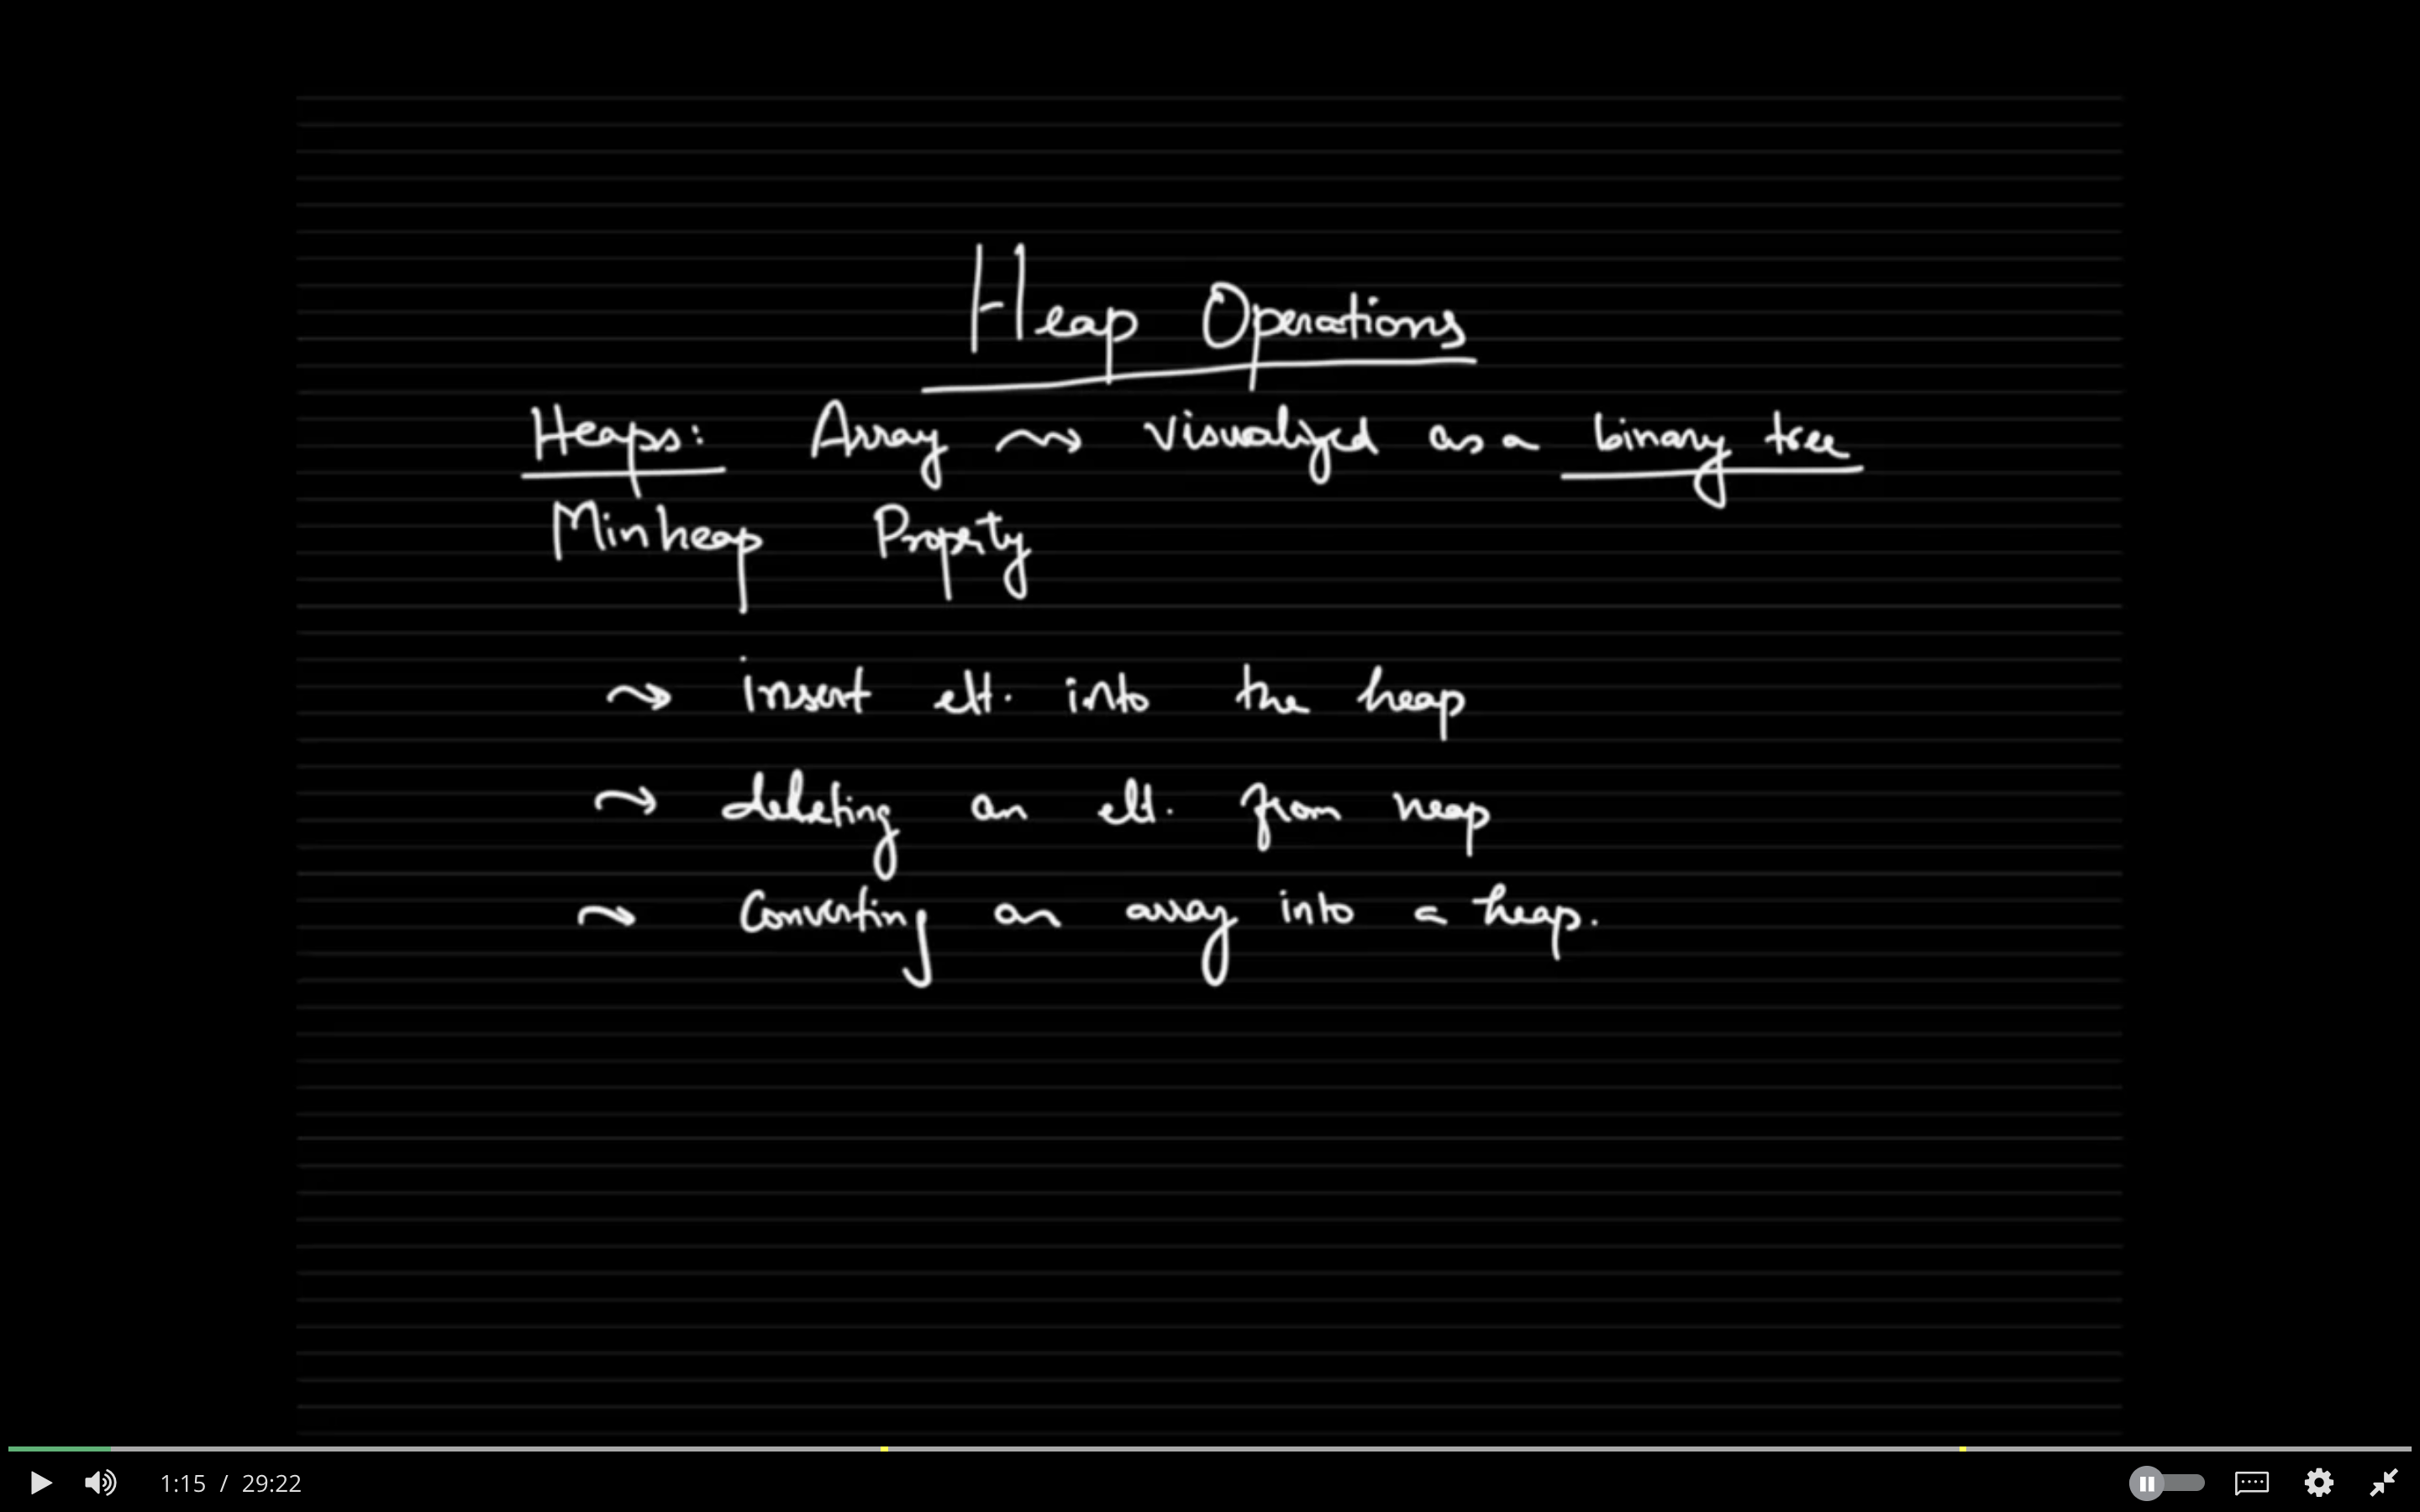 Heap Operations
Heaps: Array ⇝ visualized as a binary tree
Minheap Property
⇝ insert elt. into the heap
⇝ deleting an elt. from heap
⇝ Converting an array into a heap.
1:15 / 29:22